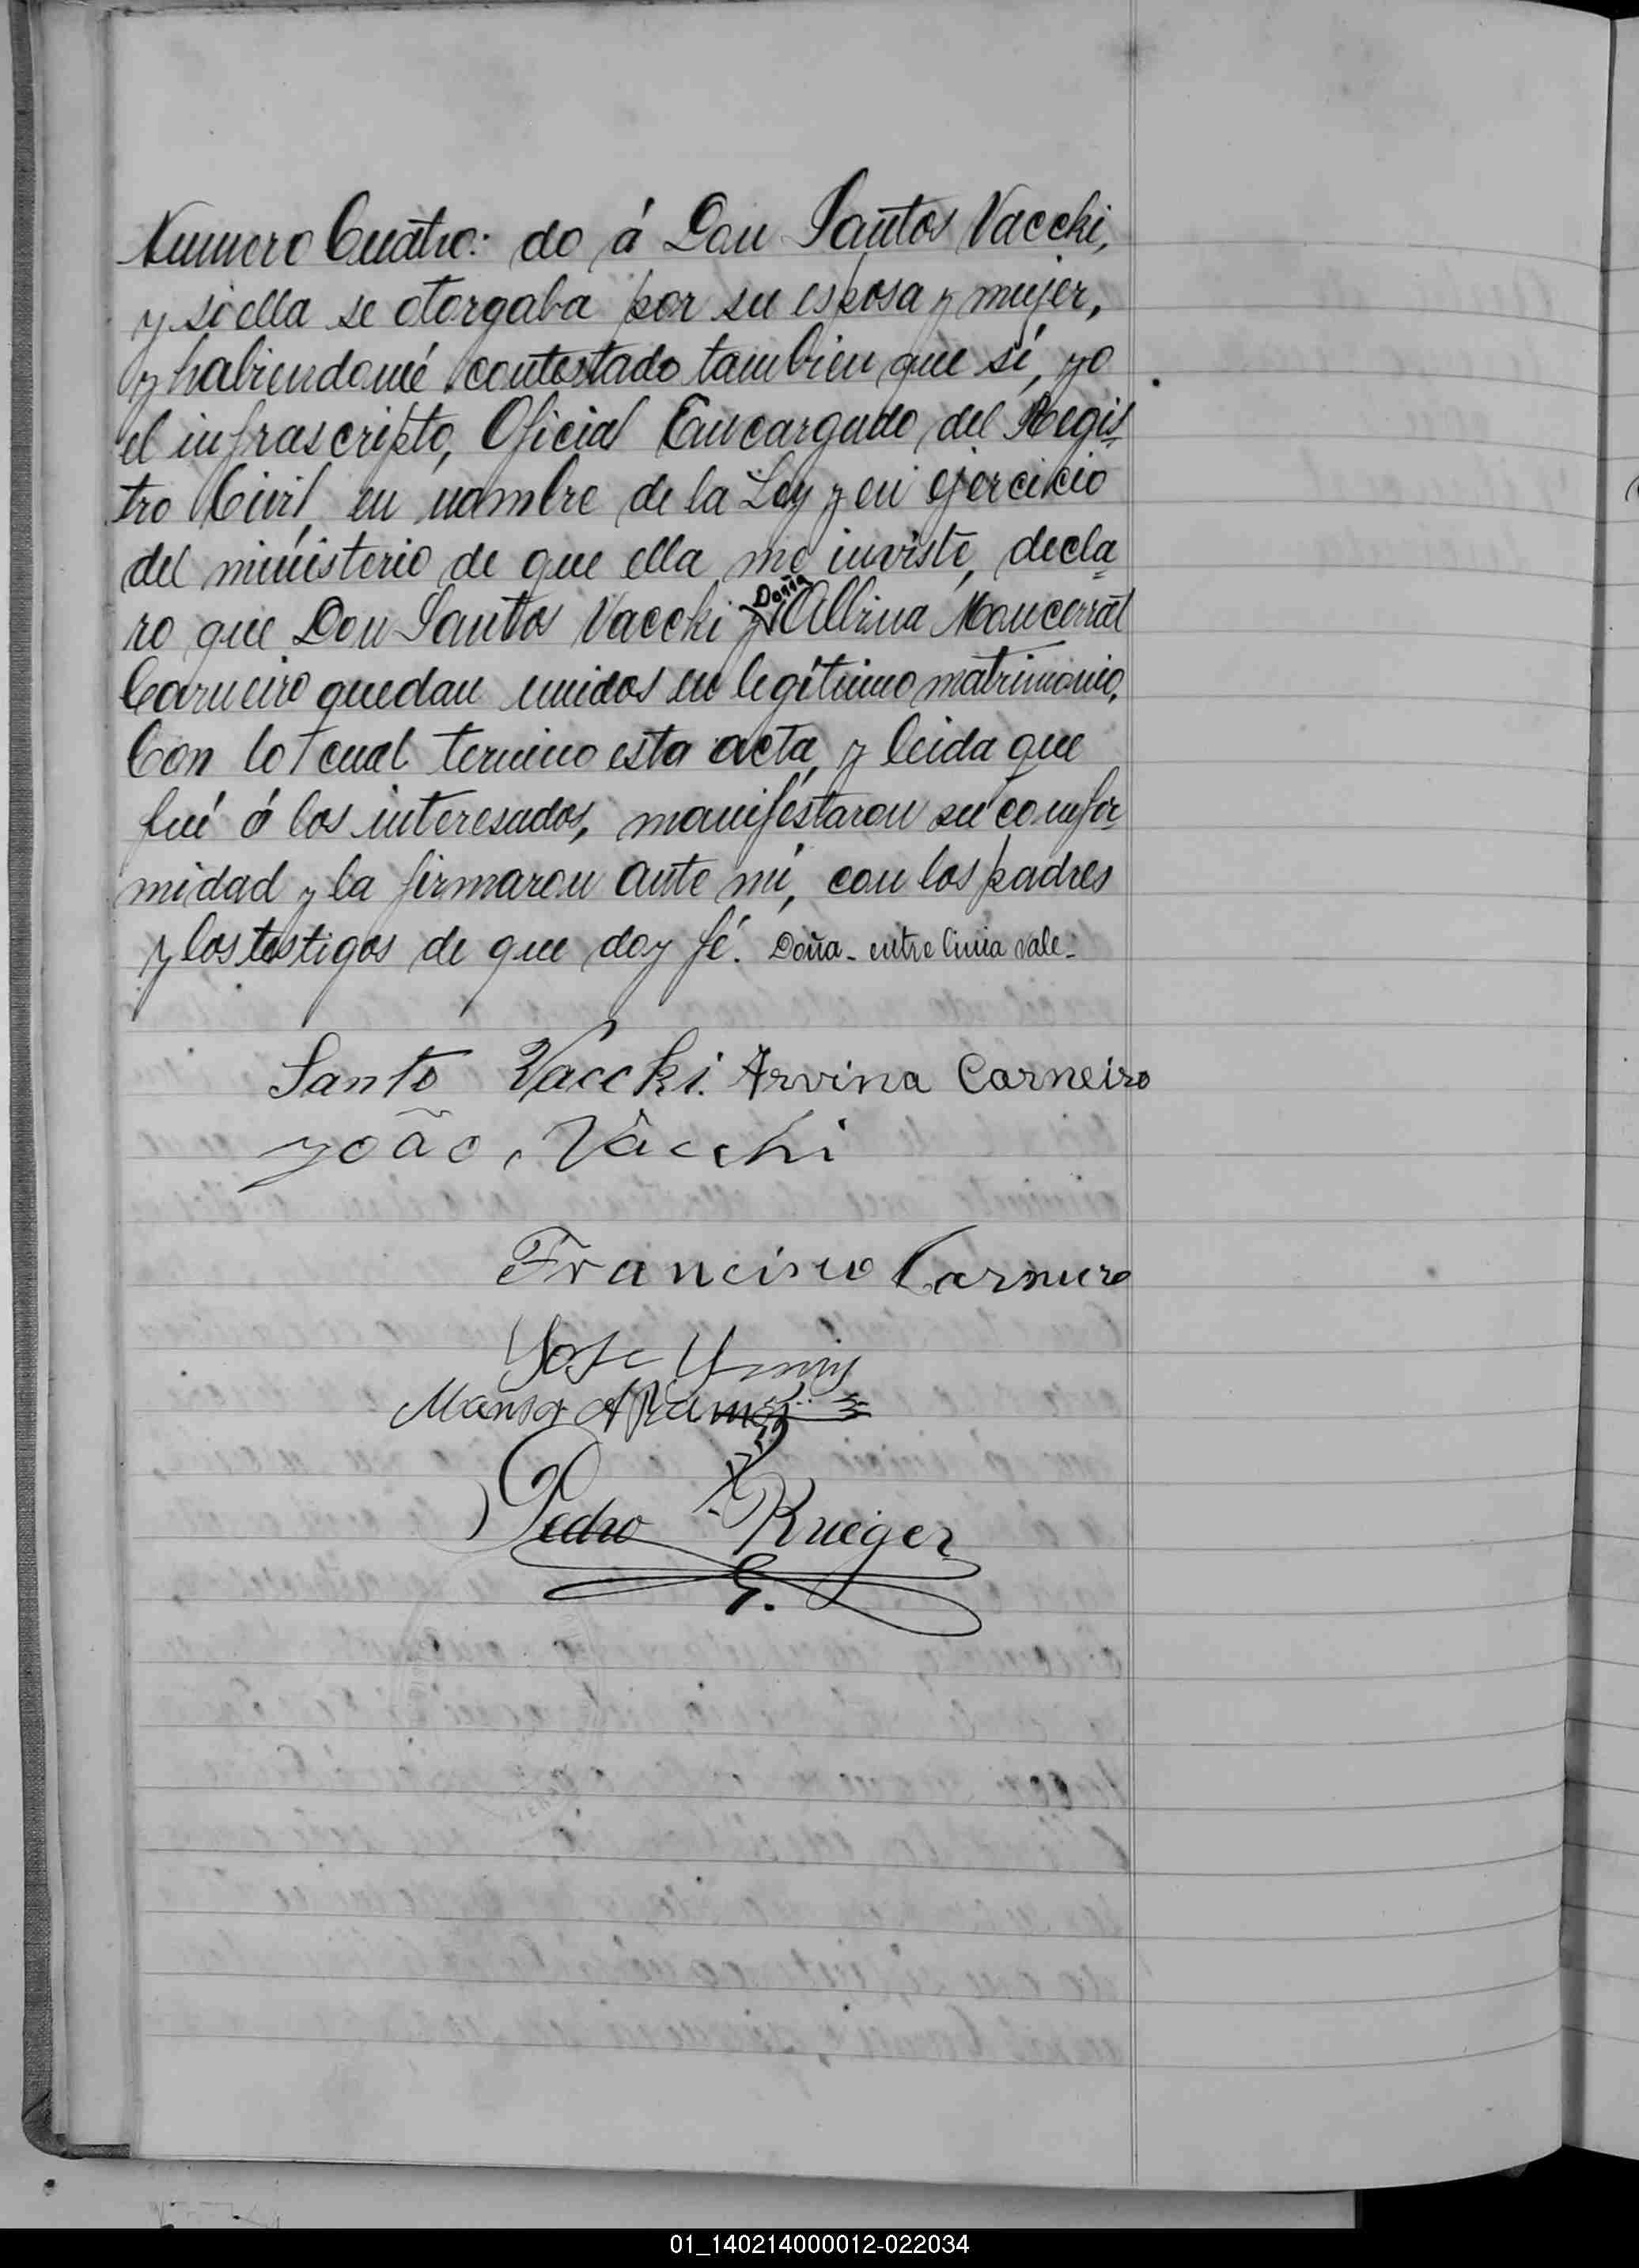 Numero Cuatro: do á Don Santos Vaccki,
y si ella se otorgaba por su esposa y mujer,
y habiendomé contestado tambien que si, yo
el infrascripto, Oficial Encargado del Regis
tro Civil, en nombre de la Ley y en ejercicio
del ministerio de que ella me inviste, decla
ro que Don Santos Vaccki y Doña Albina Moncerrat
Carneiro quedan unidos en legítimo matrimonio.
Con lo cual termino esta acta, y leida que
fué á los interesados, manifestaron su confor
midad y la firmaron ante mi, con los padres
y los testigos de que doy fé. Doña - entre linia vale -
Santo Vaccki. Arvina Carneiro
João Vacchi
Francisco Carneiro
Jose
Ramos
Pedro Krieger
G.
01_140214000012-022034